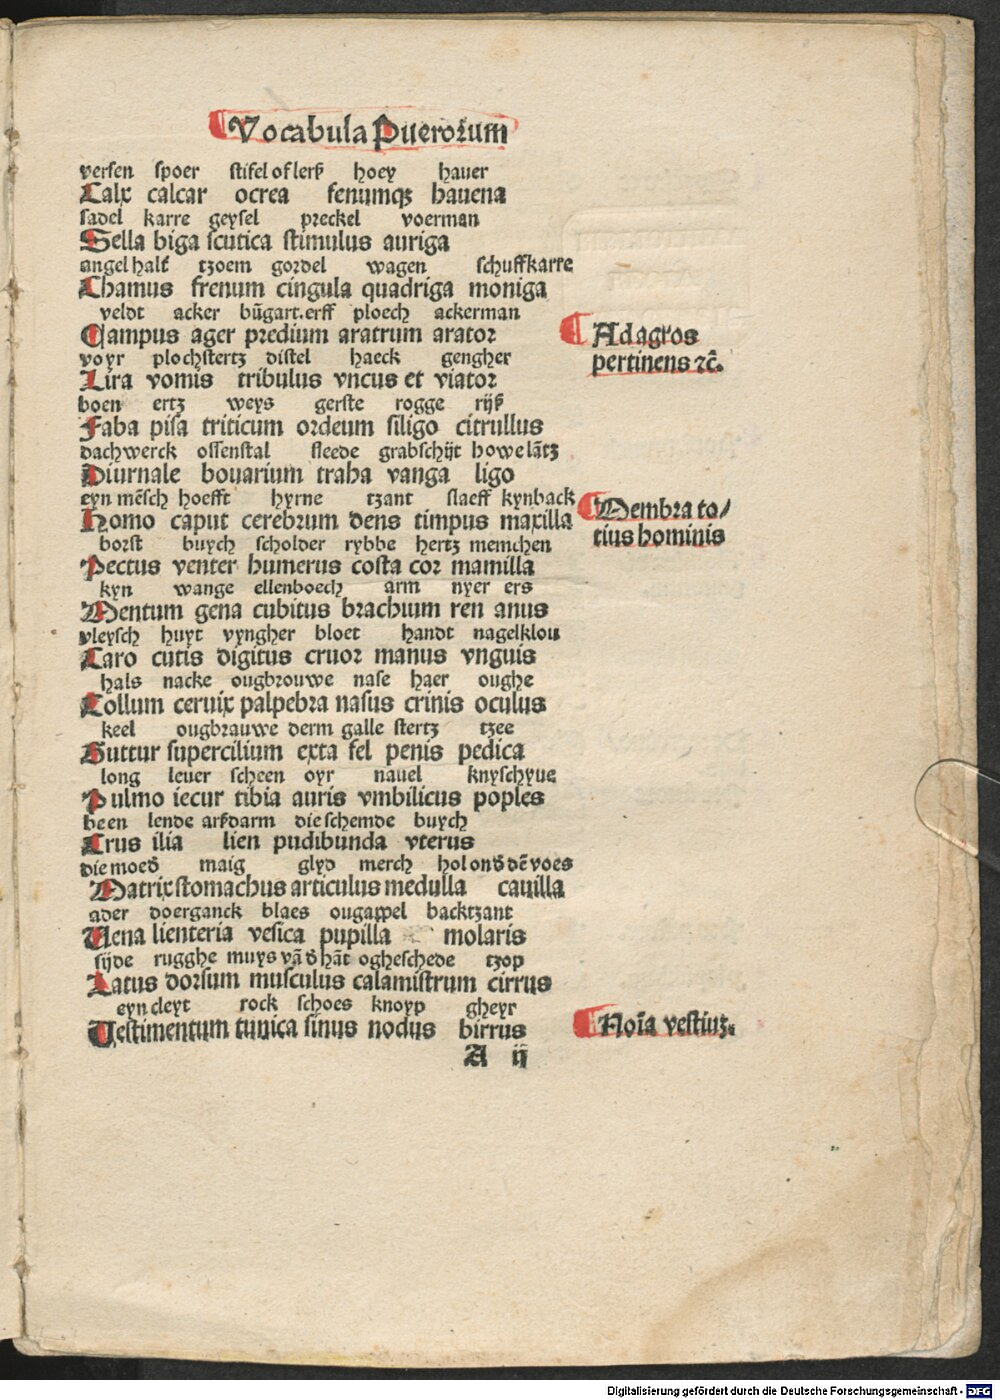 Vocabula Puerorum
versen spoer stifel of lerß hoey haver
Calx calcar ocrea fenumqꝫ hauena
sadel karre geysel preckel voerman
Sella biga scutica stimulus auriga
angel halt tzoem gordel wagen schuffkarre
Chamus frenum cingula quadriga moniga
veldt acker bũgart.erff ploech ackerman
Campus ager predium aratrum arator
voyr plochstertz distel haeck gengher
Lira vomis tribulus vncus et viator
boen ertz weys gerste rogge rijß
Faba pisa triticum ordeum siligo citrullus
dachwerck ossenstal sleede grabschijt howelãtz
Diurnale bouarium traha vanga ligo
eyn mẽsch hoefft hyrne tzant slaeff kynback
Homo caput cerebrum dens timpus maxilla
borst buych scholder rybbe hertz memchen
Pectus venter humerus costa cor mamilla
kyn wange ellenboech arm nyer ers
Mentum gena cubitus brachium ren anus
vleysch huyt vyngher bloet handt nagelklou
Caro cutis digitus cruor manus vnguis
hals nacke ougbrouwe nase haer oughe
Collum ceruix palpebra nasus crinis oculus
keel ougbrauwe derm galle stertz tzee
Guttur supercilium exta fel penis pedica
long leuer scheen oyr nauel knyschyue
Pulmo iecur tibia auris vmbilicus poples
been lende arßdarm die schemde buych
Crus ilia lien pudibunda vterus
die moed̉ maig glyd merch hol ond̉ dẽ voes
Matrix stomachus articulus medulla cauilla
ader doerganck blaes ougappel backtzant
Uena lienteria vesica pupilla molaris
sijde rugghe muys vã d̉ hãt ogheschede tzop
Latus dorsum musculus calamistrum cirrus
eyn cleyt rock schoes knoyp gheyr
Uestimentum tunica sinus nodus birrus
A ij
Ad agros
pertinens ⁊c̃.
Membra to/
tius hominis
Noĩa vestiuꝫ.
Digitalisierung gefördert durch die Deutsche Forschungsgemeinschaft - DFG